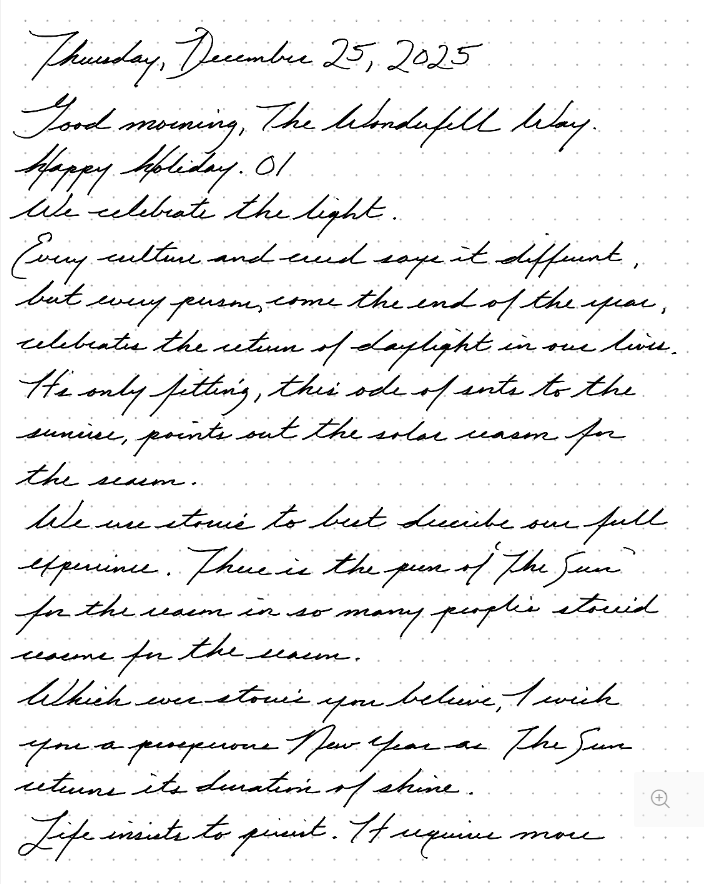 Thursday, December 25, 2025
Good morning, The Wonderfell Way.
Happy Holiday. 01
We celebrate the light.
Every culture and creed says it different,
but every person, come the end of the year,
celebrates the return of daylight in our lives.
It's only fitting, this ode of sorts to the
sunrise, points out the solar reason for
the season.
We use stories to best describe our full
experience. There is the pun of "The Sun"
for the reason in so many people's storied
reasons for the season.
Which ever stories you believe, I wish
you a prosperous New Year as The Sun
returns its duration of shine.
Life insists to persist. It requires more